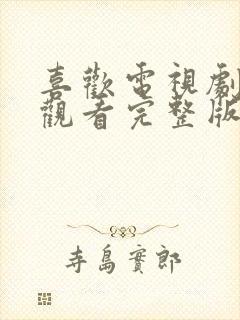 喜歡電視劇
觀看完整版
寺島實郎